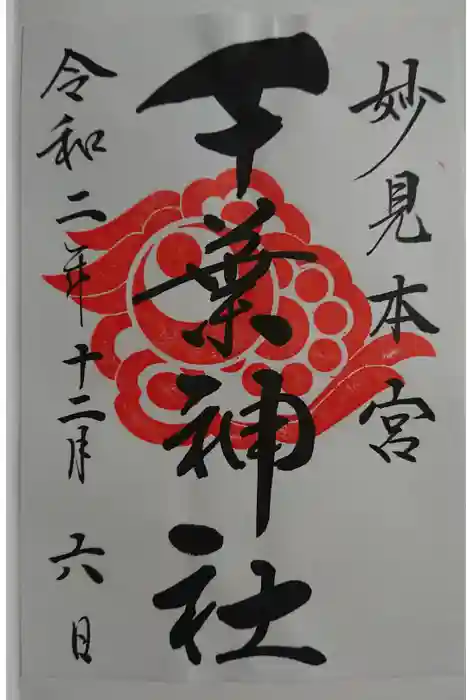 妙見本宮
千葉神社
令和二年十二月 六日